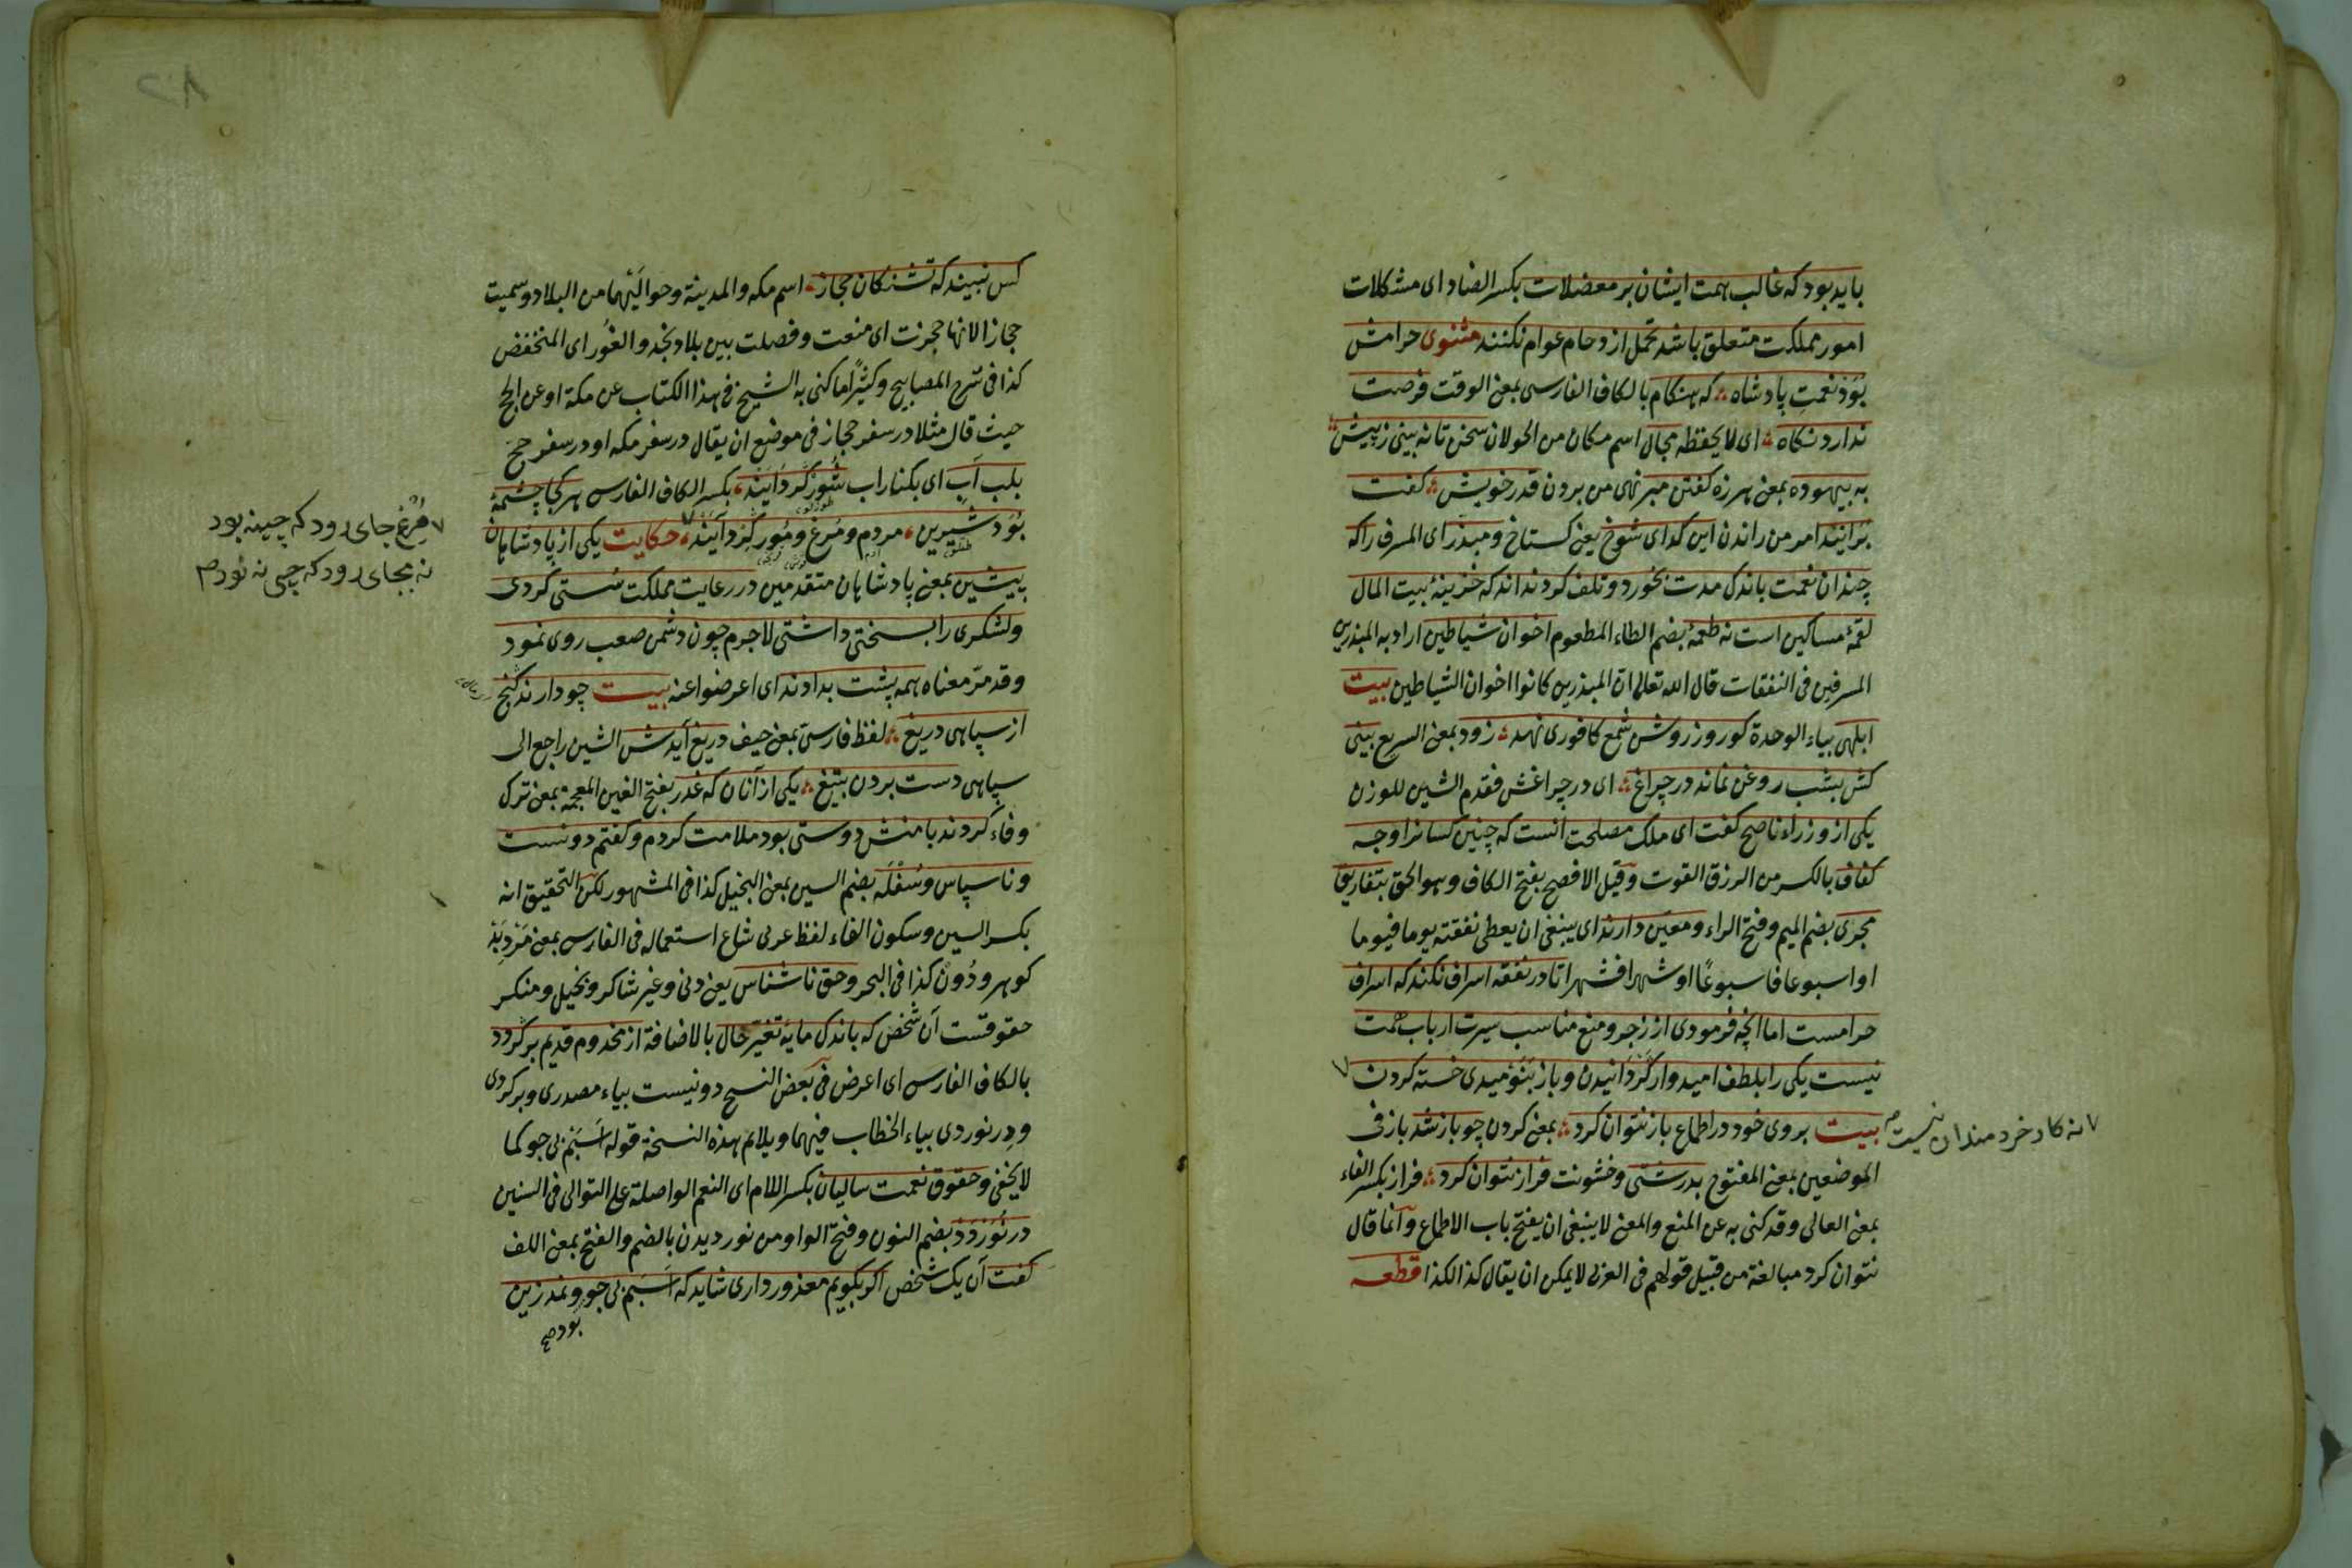 باید بود که غالب همت ایشان بر معضلات بکسر الضاد ای مشکلات
امور مملکت متعلق باشد تحمل ازدحام عوام نکنند مثنوی حرامش
بود نعمت پادشاه که هنکام بالکاف الفارسی بمعنی الوقت فرصت
ندارد نکاه ای لا یحفظه مجال اسم مکان من الجولان سخن تا نه بینی ز پیش
به بیهوده بمعنی هرزه کفتن مبر نهی من بردن قدر خویش کفت
برانید امر من راندن این کدای شوخ یعنی کستاخ و مبذر ای المسرف را که
چندان نعمت باندک مدت بخورد و تلف کرد نداند که خزینهٔ بیت المال
لقمهٔ مساکین است نه طعمهٔ بضم الطاء المطعوم اخوان شیاطین اراد به المبذرین
المسرفین فی النفقات قال الله تعالی ان المبذرین کانوا اخوان الشیاطین بیت
ابلهی بیاء الوحدة کو روز روشن شمع کافوری نهد زود بمعنی السریع بینی
کش بشب روغن نماند در چراغ ای در چراغش فقدم الشین للوزن
یکی از وزراء ناصح کفت ای ملک مصلحت آنست که چنین کسانرا وجه
کفاف بالکسر من الرزق القوت وقیل الافصح بفتح الکاف وهو الحق بتفاریق
مجری بضم المیم وفتح الراء ومعین دارند ای ینبغی ان یعطی نفقته یوما فیوما
او اسبوعا فاسبوعًا او شهرا فشهرا تا در نفقه اسراف نکند که اسراف
حرامست اما انچه فرمودی از زجر و منع مناسب سیرت ارباب همت
نیست یکی را بلطف امیدوار کردانیدن و باز بنومیدی خسته کردن ٧
٧ نه کار خردمندان نیست
بیت بروی خود در اطماع باز نتوان کرد بمعنی کردن چو باز شد باز فی
الموضعین بمعنی المفتوح بدرشتی وخشونت فراز نتوان کرد فراز بکسر الفاء
بمعنی العالی وقد کنی به عن المنع والمعنی لا ینبغی ان یفتح باب الاطماع وانما قال
نتوان کرد مبالغة من قبیل قولهم فی العربی لا یمکن ان یقال کذا لکذا قطعه
کس نبیند که تشنکان حجاز اسم مکه والمدینة وحوالیهما من البلاد وسمیت
حجازا لانها حجزت ای منعت وفصلت بین بلاد نجد والغور ای المنخفض
کذا فی شرح المصابیح وکثیرًا ما کنی به الشیخ فی هذا الکتاب عن مکة او عن الحج
حیث قال مثلا در سفر حجاز فی موضع ان یقال در سفر مکه او در سفر حج
بلب آب ای بکنار اب شور کرد آیند بکسر الکاف الفارسی هر کجا چشمهٔ
بود شیرین مردم و مرغ و مور کرد آیند ٧ حکایت یکی از پادشاهان
٧ مرغ جای رود که چینه بود
نه بجای رود که چی نه بود
پیشین بمعنی پادشاهان متقدمین در رعایت مملکت سستی کردی
ولشکری را بسختی داشتی لا جرم چون دشمن صعب روی نمود
وقد مر معناه همه پشت بدادند ای اعرضوا عنه بیت چو دارند کنج
از سپاهی دریغ لفظ فارسی بمعنی حیف دریغ آیدش الشین راجع الی
سپاهی دست بردن بتیغ یکی از آنان که غدر بفتح الغین المعجمة بمعنی ترک
وفاء کردند با منش دوستی بود ملامت کردم و کفتم دونست
و ناسپاس و سفله بضم السین بمعنی البخیل کذا فی المشهور لکن التحقیق انه
بکسر السین وسکون الفاء لفظ عربی شاع استعماله فی الفارسی بمعنی مرد بد
کوهر و دون کذا فی البحر وحق ناشناس یعنی دنی وغیر شاکر وبخیل ومنکر
حقوقست آن شخص که باندک مایه تغیر حال بالاضافة از مخدوم قدیم برکردد
بالکاف الفارسی ای اعرض فی بعض النسخ دونیست بیاء مصدری وبرکردی
ودرنوردی بیاء الخطاب فیهما ویلایم هذه النسخة قوله اسبم بی جو کما
لا یخفی وحقوق نعمت سالیان بکسر اللام ای النعم الواصلة علی التوالی فی السنین
درنوردد بضم النون وفتح الواو من نوردیدن بالضم والفتح بمعنی اللف
کفت آن یک شخص اکر بکویم معذور داری شاید که اسبم بی جو و نمد زین
بود